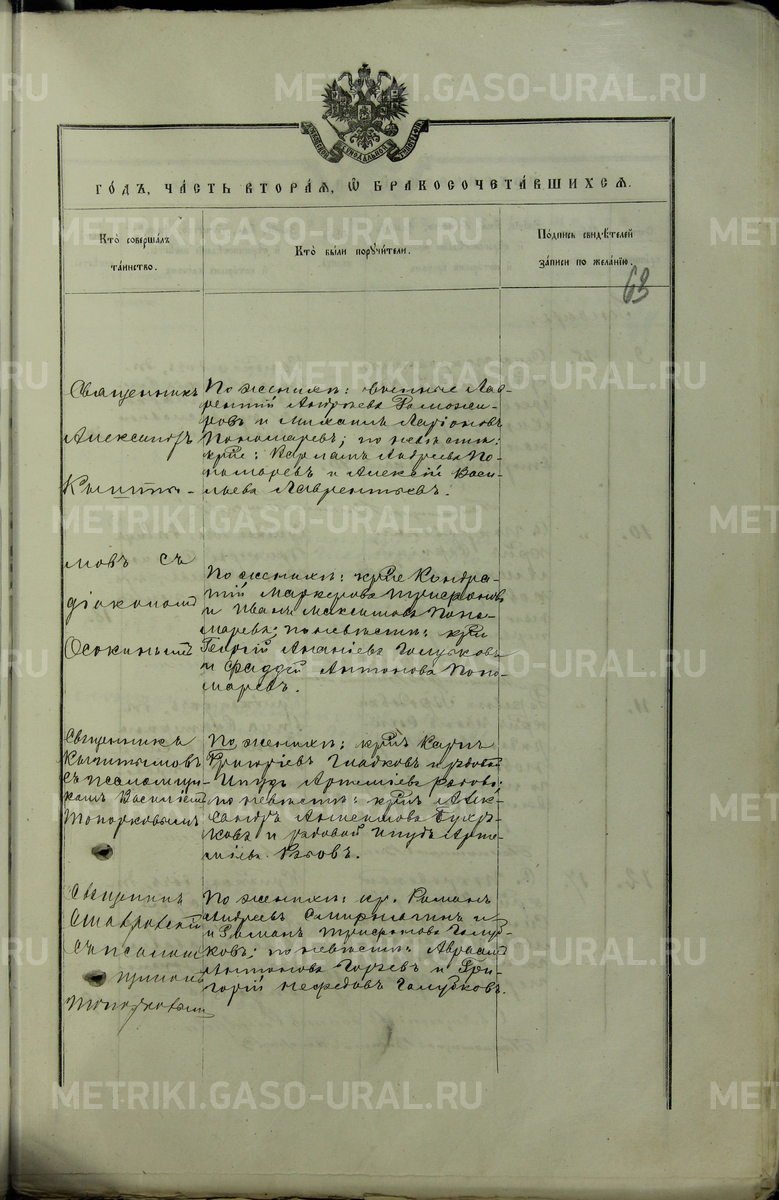 METRIKI.GASO-URAL.RU
СѴНОДАЛЬНОЙ
ГО́ДЪ, ЧА́СТЬ ВТОРА́Я, Ѿ БРАКОСОЧЕТА́ВШИХСЯ.
Кто̀ соверша́лъ
та́инство.
Кто̀ бы́ли порꙋчи́тели.
По́дпись свидѣ́телей
за́писи по жела́нію.
63
Священникъ
Александръ
Кышты-
мовъ съ
діакономъ
Осокинымъ
По женихѣ: военные Лав-
рентій Андреевъ
ровъ и Михаилъ Ларіоновъ
Пономаревъ; по невѣстѣ:
кр̅не: Варлаамъ Андреевъ По-
номаревъ и Алексѣй Васи-
льевъ Лаврентьевъ.
По женихѣ: кр̅не Кондра-
тій Маркеловъ Трифоновъ
и Иванъ Максимовъ Поно-
маревъ; по невѣстѣ: кр̅не
Георгій Ананіевъ Голубковъ
и Фаддей Антоновъ Поно-
маревъ.
Священникъ
Кыштымовъ
съ псаломщи-
комъ Василіемъ
Топорковымъ
По женихѣ: кр̅нъ Карпъ
Григоріевъ Гладковъ и рядовой
Іпудъ Артеміевъ
по невѣстѣ: кр̅нъ Алек-
сандръ Анисимовъ
и рядовой Іпудъ Арте-
міевъ
Священникъ
Ставровскій
съ псалом
щикомъ
Топорковымъ
По женихѣ: кр. Романъ
Андреевъ Смирнягинъ и
и Романъ Трифоновъ Голуб-
ковъ; по невѣстѣ: Авраамъ
Антоновъ и Гри-
горій Нефедовъ Голубковъ.